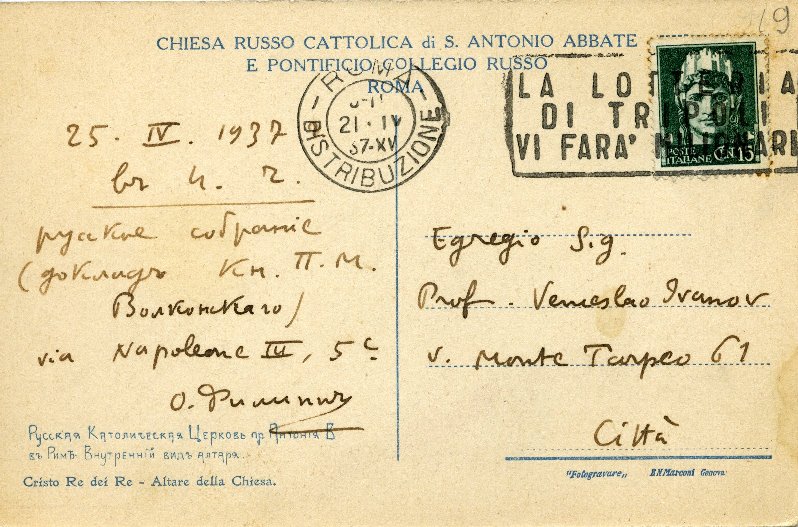 19
CHIESA RUSSO CATTOLICA di S. ANTONIO ABBATE
E PONTIFICIO COLLEGIO RUSSO
ROMA
ROMA
21·IV
37-XV
DISTRIBUZIONE
LA LOTTERIA
DI TRIPOLI
VI FARA' MILIONARI
POSTE
ITALIANE
CEN. 15
25. IV. 1937
въ 4. ч.
русское собраніе
(докладъ Кн. П. М.
Волконскаго)
via Napoleone III, 5c
О. Филиппъ
Русская Католическая Церковь пр. Антонія В
въ Римѣ. Внутренній видъ алтаря.
Cristo Re dei Re - Altare della Chiesa.
Egregio Sig.
Prof. Venceslao Ivanov
v. Monte Tarpeo 61
Città
"Fotogravure„ B.N.Marconi Genova